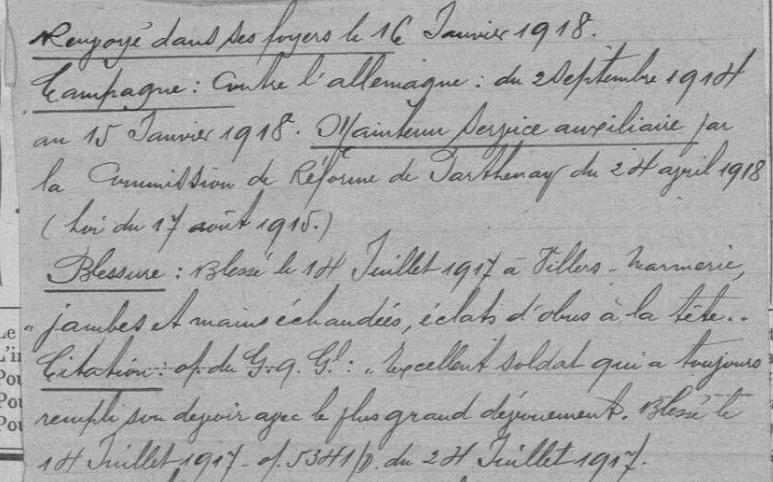 Renvoyé dans ses foyers le 16 Janvier 1918.
Campagne : Contre l'allemagne : du 2 Septembre 1914
au 15 Janvier 1918. Maintenu Service auxiliaire par
la Commission de Réforme de Parthenay du 24 april 1918
(Loi du 17 août 1915.)
Blessure : Blessé le 14 Juillet 1917 à Villers-Marmerie,
"jambes et mains échaudées, éclats d'obus à la tête..
Citation : of. du G.q.Gl : "Excellent soldat qui a toujours
rempli son devoir avec le plus grand dévouement. Blessé le
14 Juillet 1917 - of. 5341/D. du 24 Juillet 1917.
Le
L'in
Pou
Pou
Pou